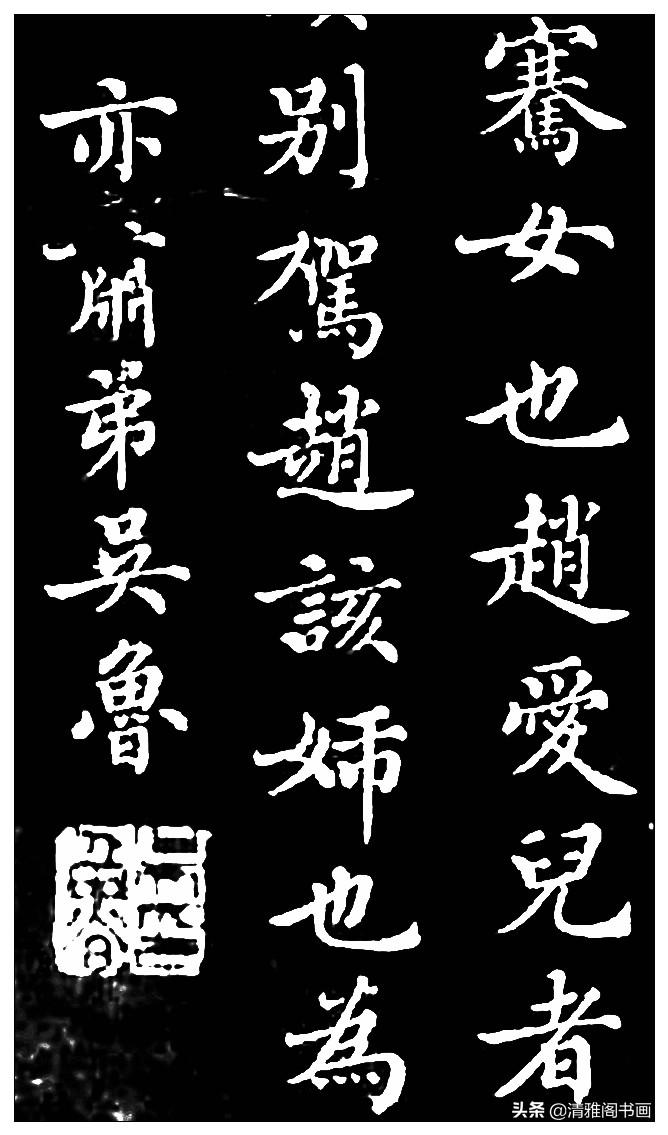 騫女也趙愛兒者
别駕趙該姉也為
亦弟吳魯
头条 @清雅阁书画